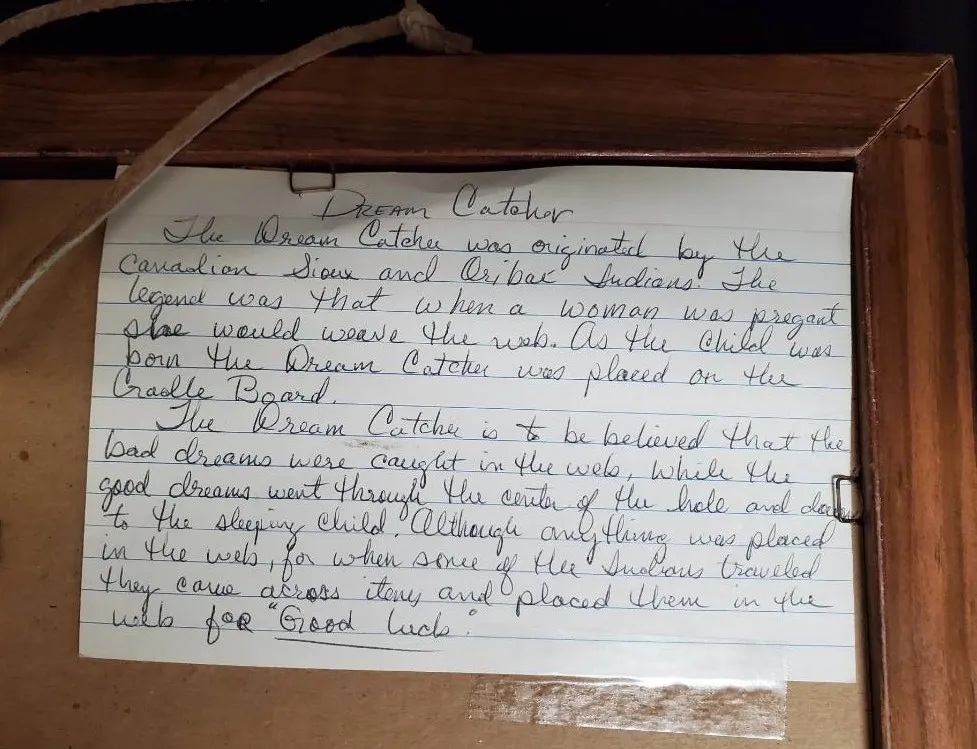 DREAM Catcher
The Dream Catcher was originated by the
Canadian Sioux and Oribac Indians. The
legend was that when a woman was pregant
she would weave the web. As the child was
born the Dream Catcher was placed on the
Cradle Board.
The Dream Catcher is to be believed that the
bad dreams were caught in the web, while the
good dreams went through the center of the hole and down
to the sleeping child. Although anything was placed
in the web, for when some of the Indians traveled
they came across items and placed them in the
web for "Good luck".